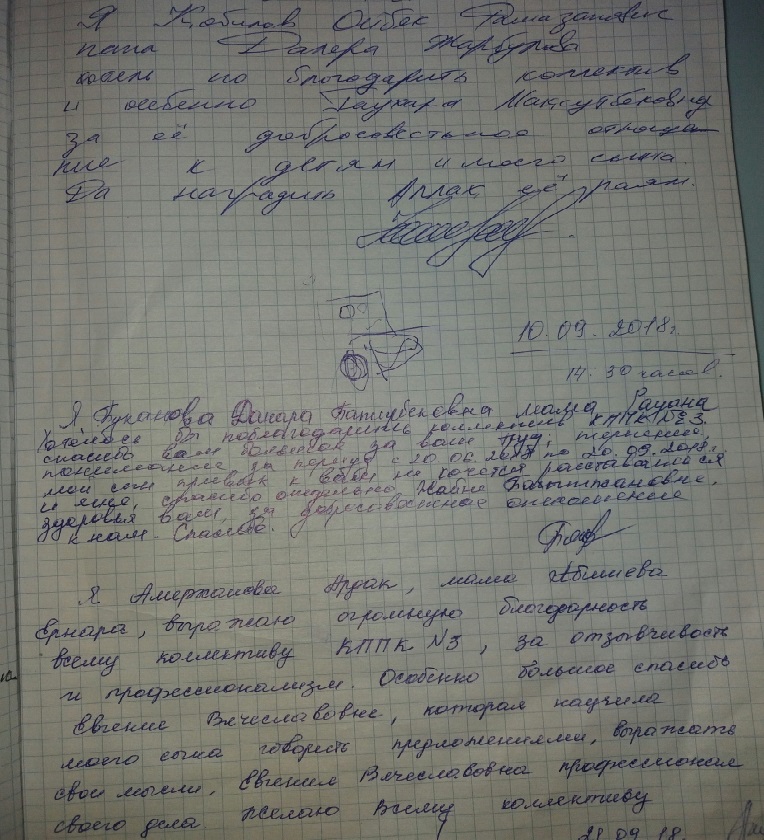 Я Кабилов Ойбек Рамазанович
папа Далера Жарбулова
хотел по благодарить коллектив
и особенно Гаухара Максутбековну
за её добросовестьное отноше
ние к детям и моего сына.
Да наградить Аллах её раям.
10.09.2018г.
14.30 часов.
Я Буканова Динара мама Раяна
Хотелось бы поблагодарить коллектив КППК №3.
спасибо вам большое за ваш труд, терпение,
понимание за период с 20.06.2018 по 20.09.2018г.
мой сын привык к Вам не хочется расставаться
и мне, спасибо
здоровья вам, за добросовестное отношение
к нам. Спасибо.
Я Амержанова Ардак, мама Абишева
Ернара, выражаю огромную благодарность
всему коллективу КППК №3, за отзывчивость
и профессионализм. Особенно большое спасибо
Евгение Вячеславовне, которая научила
моего сына говорить предложениями, выражать
свои мысли, Евгения Вячеславовна профессионал
своего дела. Желаю Всему коллективу
28.09.18